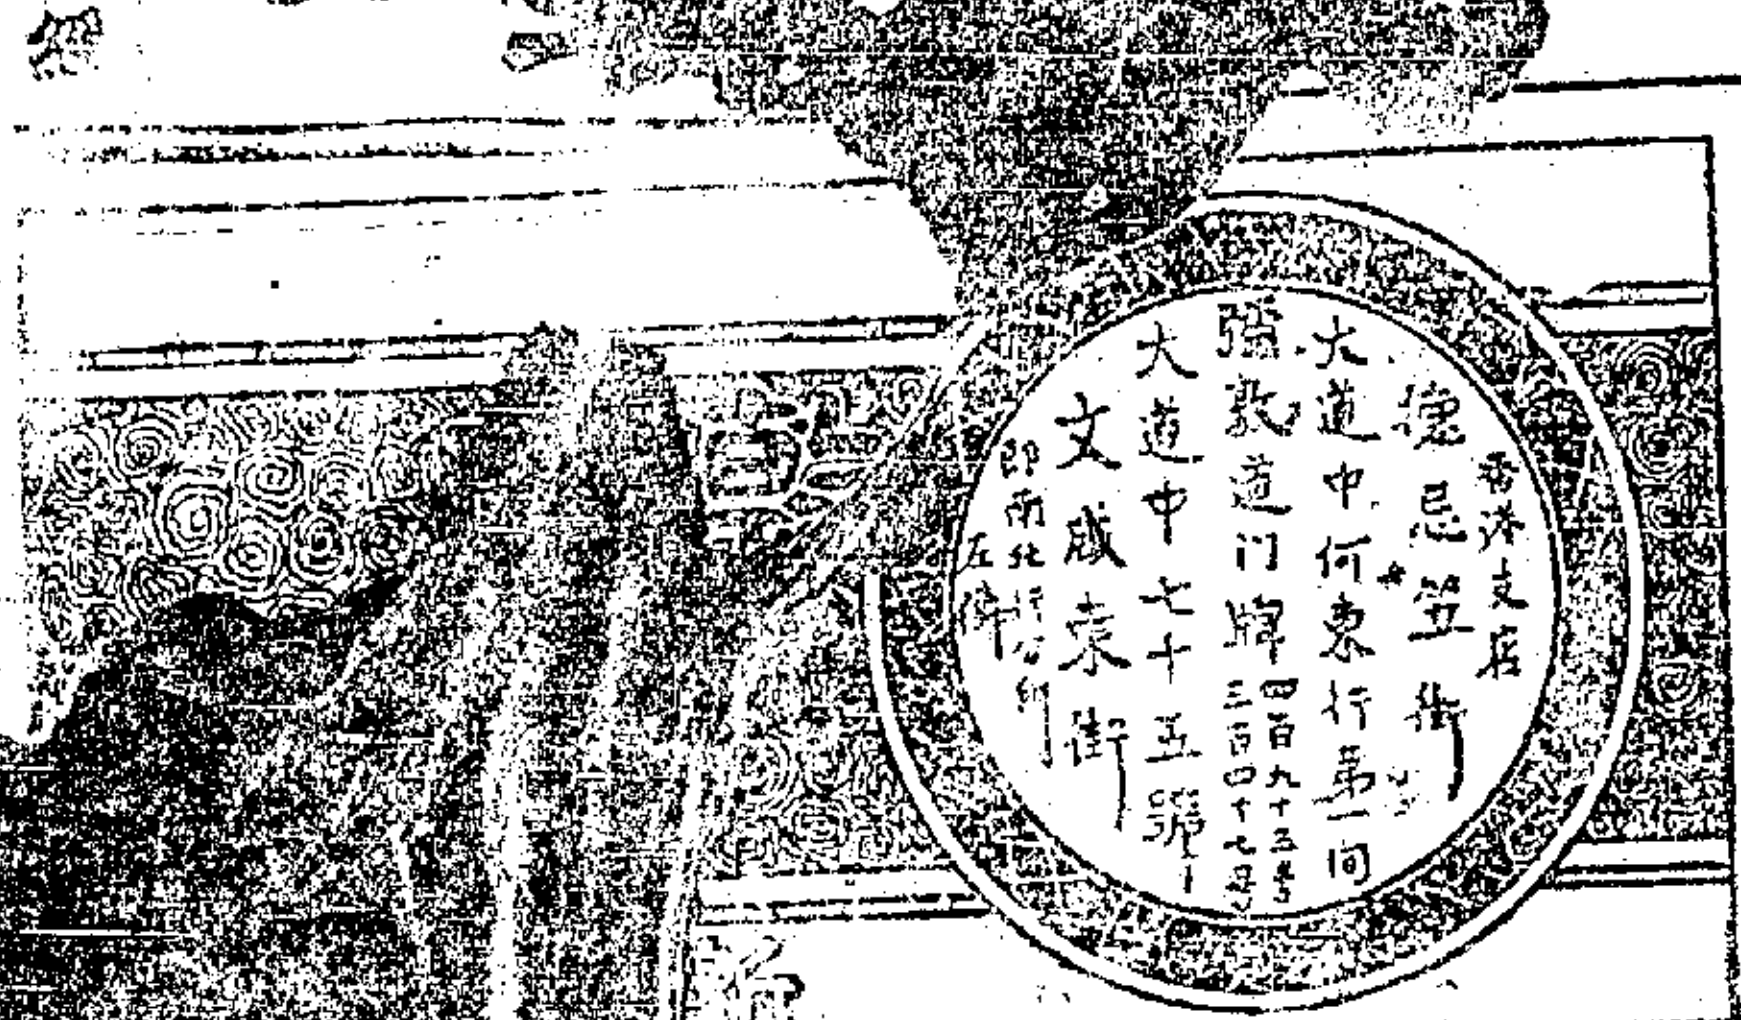 香港支店
德忌笠街
大道中何東行第一間
強敦道门牌
四百九十三号
三百四十七号
大道中七十五號
文咸東街
即南北行
左隣